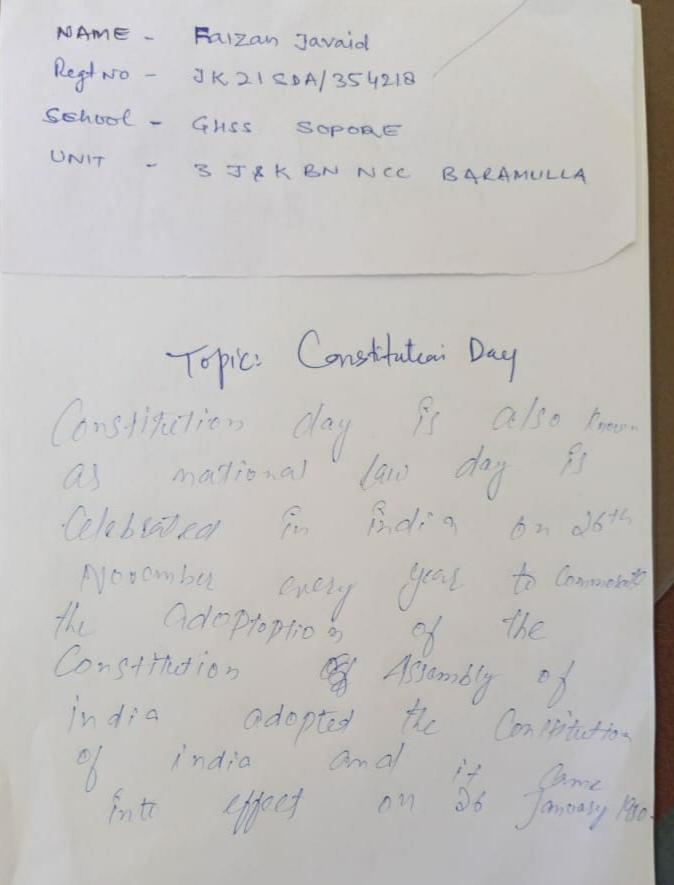 NAME - Faizan Javaid
Regt No - JK21SDA/354218
School - GHSS SOPORE
UNIT - 3 J&K BN NCC BARAMULLA
Topic: Constitution Day
Constitution day is also known
as national law day is
Celebrated in india on 26th
November every year to
the adoptoption of the
Constitution Assembly of
india adopted the Constitution
of india and it came
into effect on 26 January